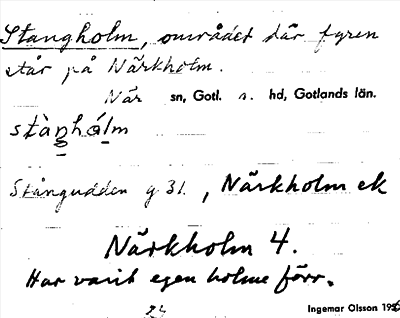 Stangholm, området där fyren
står på Närkholm.
När sn, Gotl. s. hd, Gotlands län.
stàŋhólm
Stångudden g 31. , Närkholm ek
Närkholm 4.
Har varit egen holme förr.
24 Ingemar Olsson 195